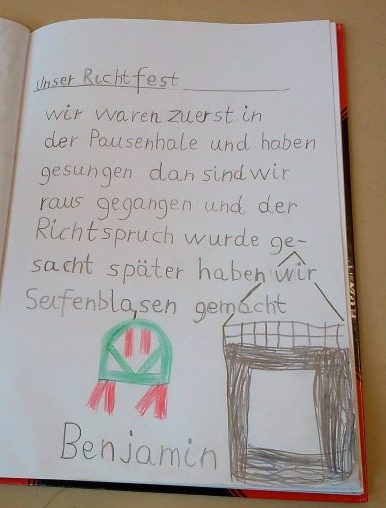 Unser Richtfest
wir waren zuerst in
der Pausenhale und haben
gesungen dan sind wir
raus gegangen und der
Richtspruch wurde ge-
sacht später haben wir
Seifenblasen gemacht
Benjamin